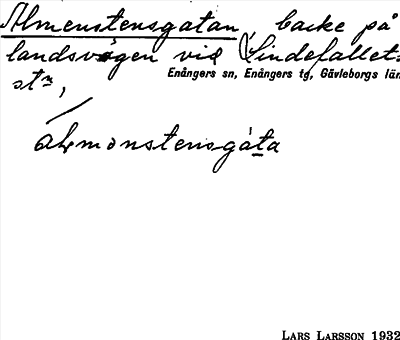 Almenstensgatan, backe på
landsvägen vid Lindefallets
Enångers sn, Enångers tg, Gävleborgs län
stn,
almonstensgáta
LARS LARSSON 1932